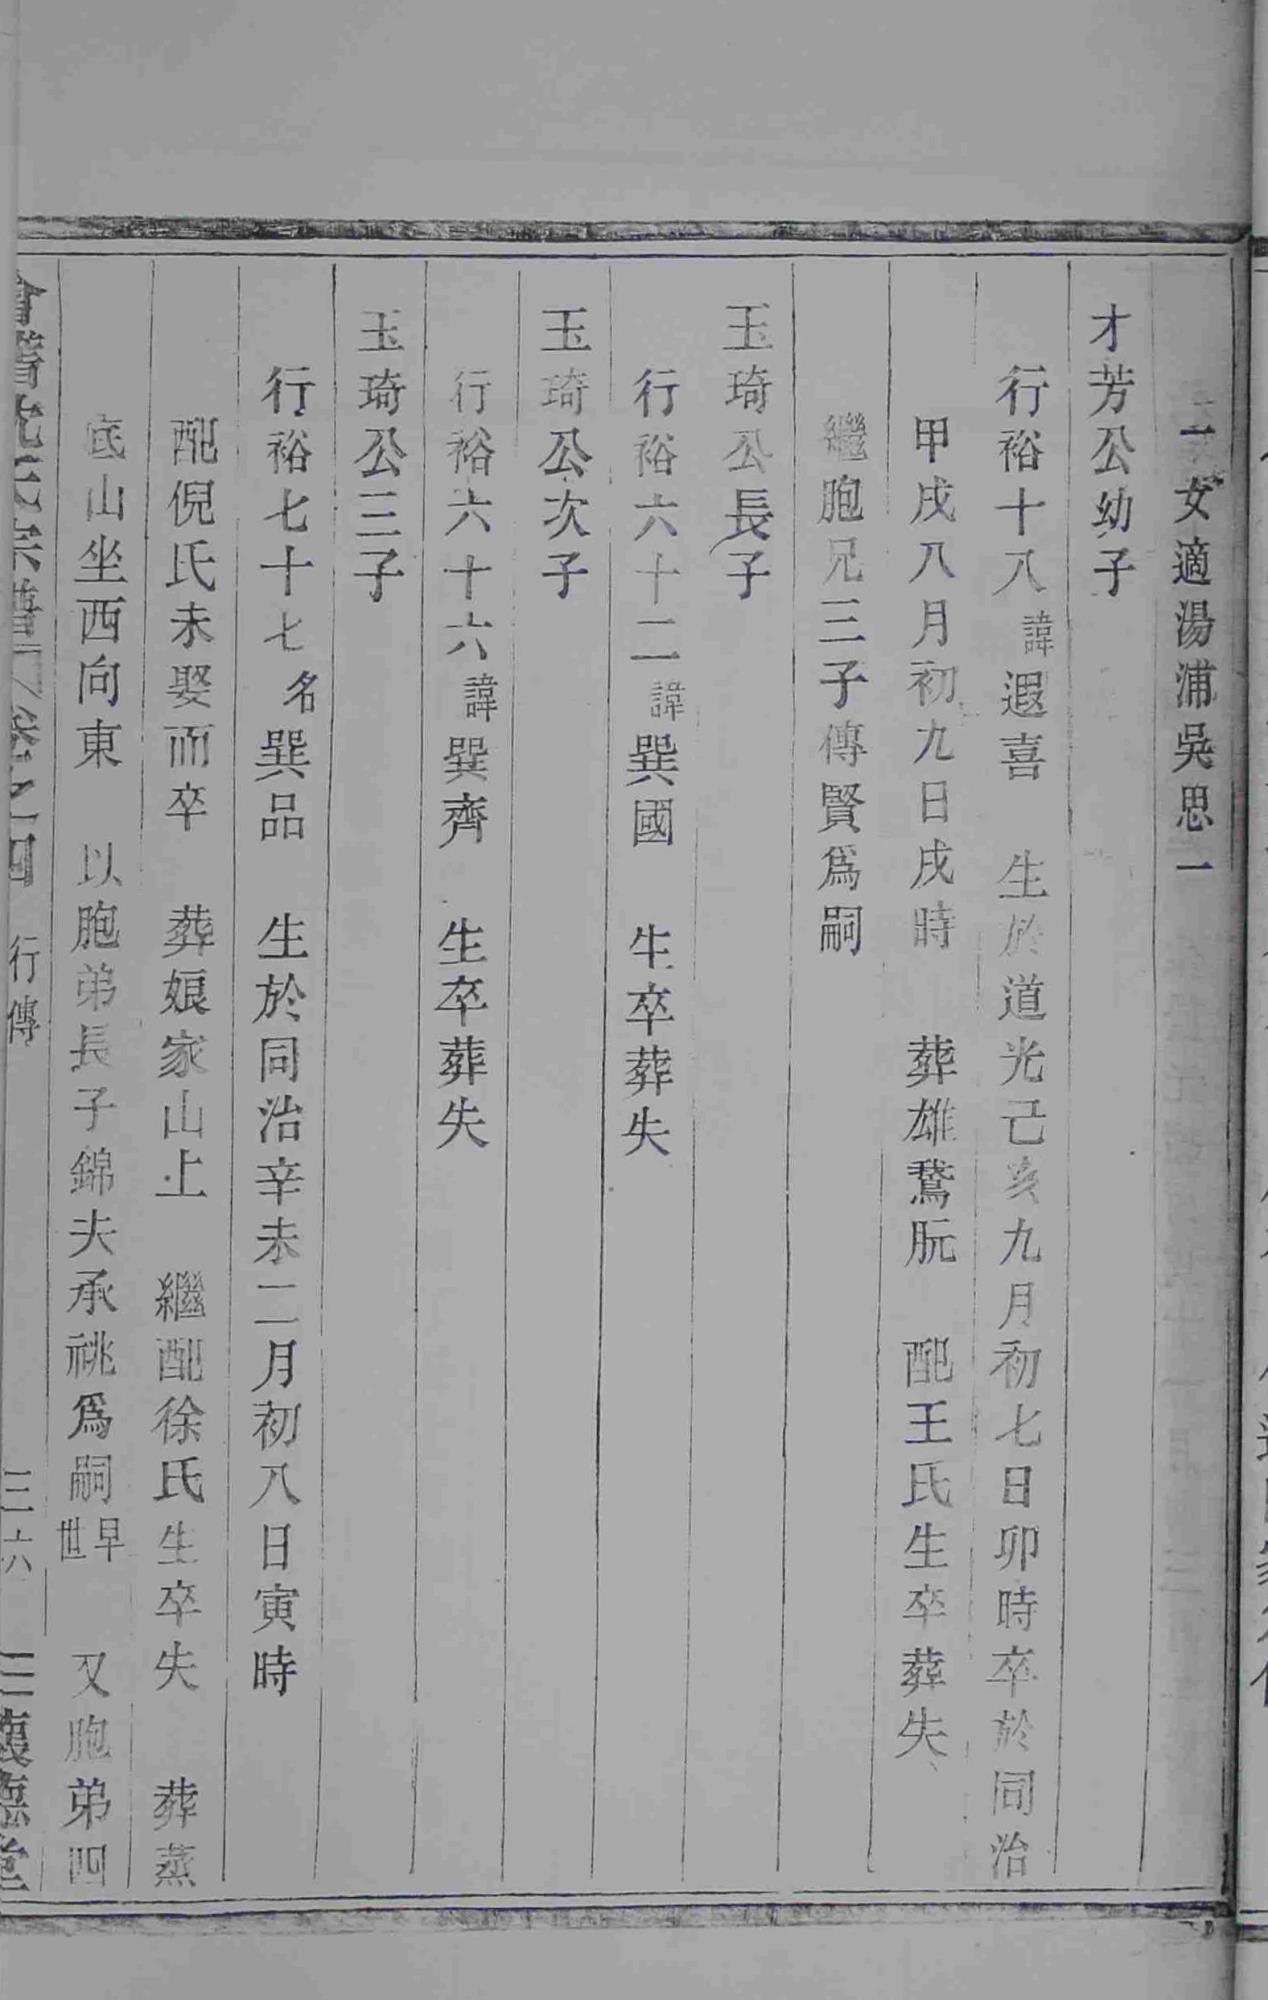 二女適湯浦吳思一
才芳公幼子
行裕十八諱遐喜 生於道光己亥九月初七日卯時卒於同治
甲戌八月初九日戌時 葬雄鵞朊 配王氏生卒葬失
繼胞兄三子傳賢爲嗣
玉琦公長子
行裕六十二諱巽國 生卒葬失
玉琦公次子
行裕六十六諱巽齊 生卒葬失
玉琦公三子
行裕七十七名巽品 生於同治辛未二月初八日寅時
配倪氏未娶而卒 葬娘家山上 繼配徐氏生卒失 葬蒸
底山坐西向東 以胞弟長子錦夫承祧爲嗣早世 又胞弟四
會稽沈氏宗譜 卷之四 行傳 三六 三蓑悳堂